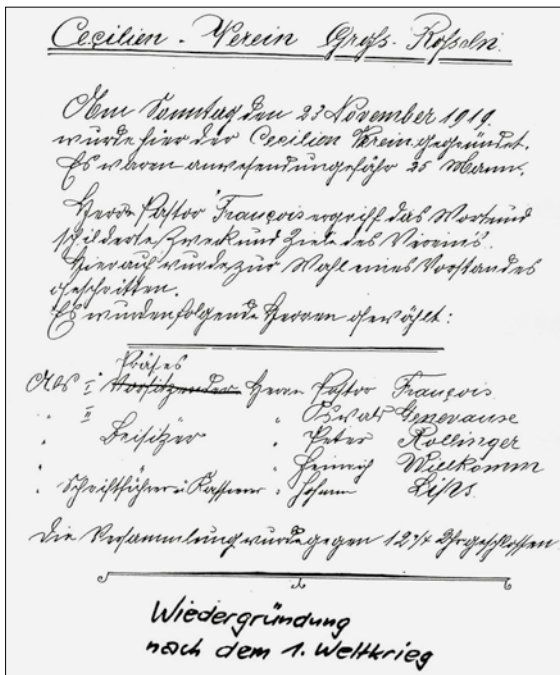 Cecilien - Verein Gross-Rosseln.
Am Sonntag den 23 November 1919.
wurde hier der Cecilien Verein gegründet.
Es waren anwesend ungefähr 25 Mann.
Herr Pastor François ergriff das Wort und
schilderte Zweck und Ziele des Vereins.
Hierauf wurde zur Wahl eines Vorstandes
geschritten.
Es wurden folgende Herren gewählt:
Präses
Als I Vorsitzender Herr Pastor François.
" II " Oswald Genevause
" Beisitzer " Peter Rollinger
" " Heinrich Willkomm
" Schriftführer u Kassierer " Johann
Die Versammlung wurde gegen 12 ¼ Uhr geschlossen.
Wiedergründung
nach dem 1. Weltkrieg